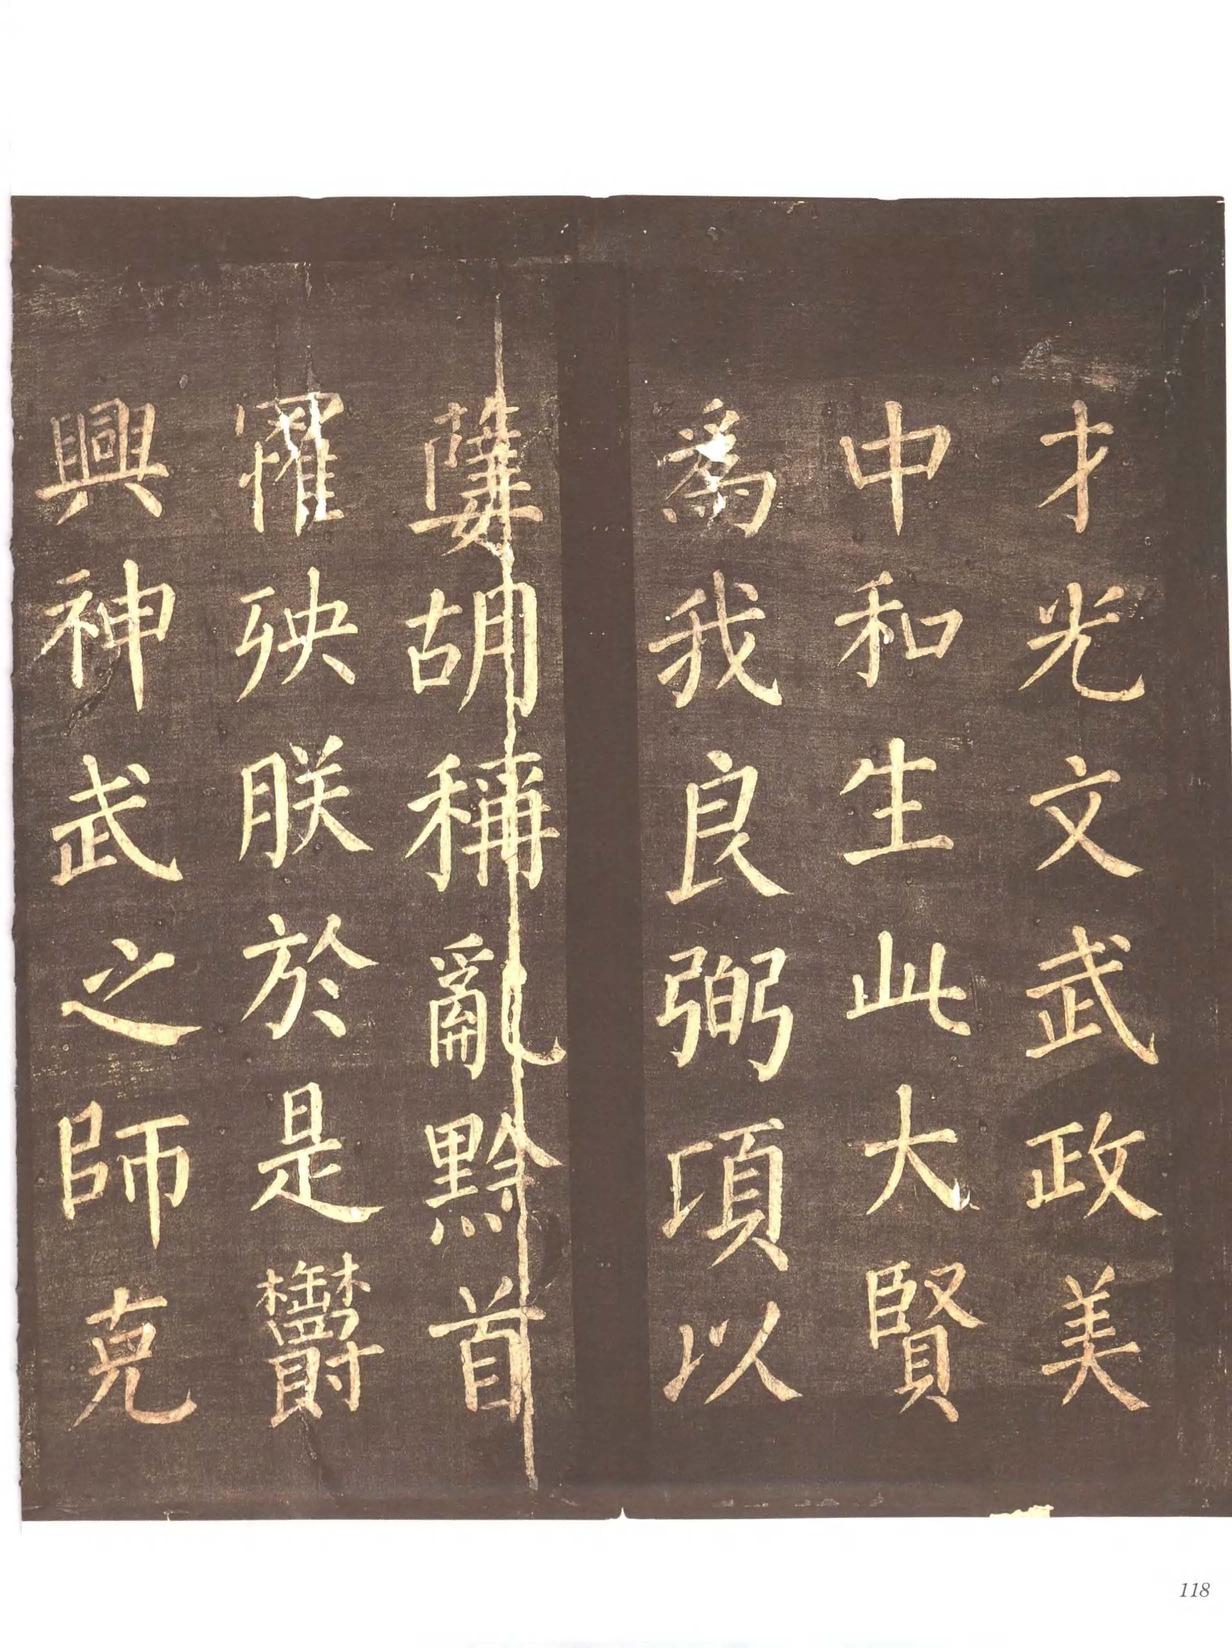 才光文武政美
中和生此大賢
爲我良弼頃以
㜸胡稱亂黔首
罹殃朕於是欝
興神武之師克
118